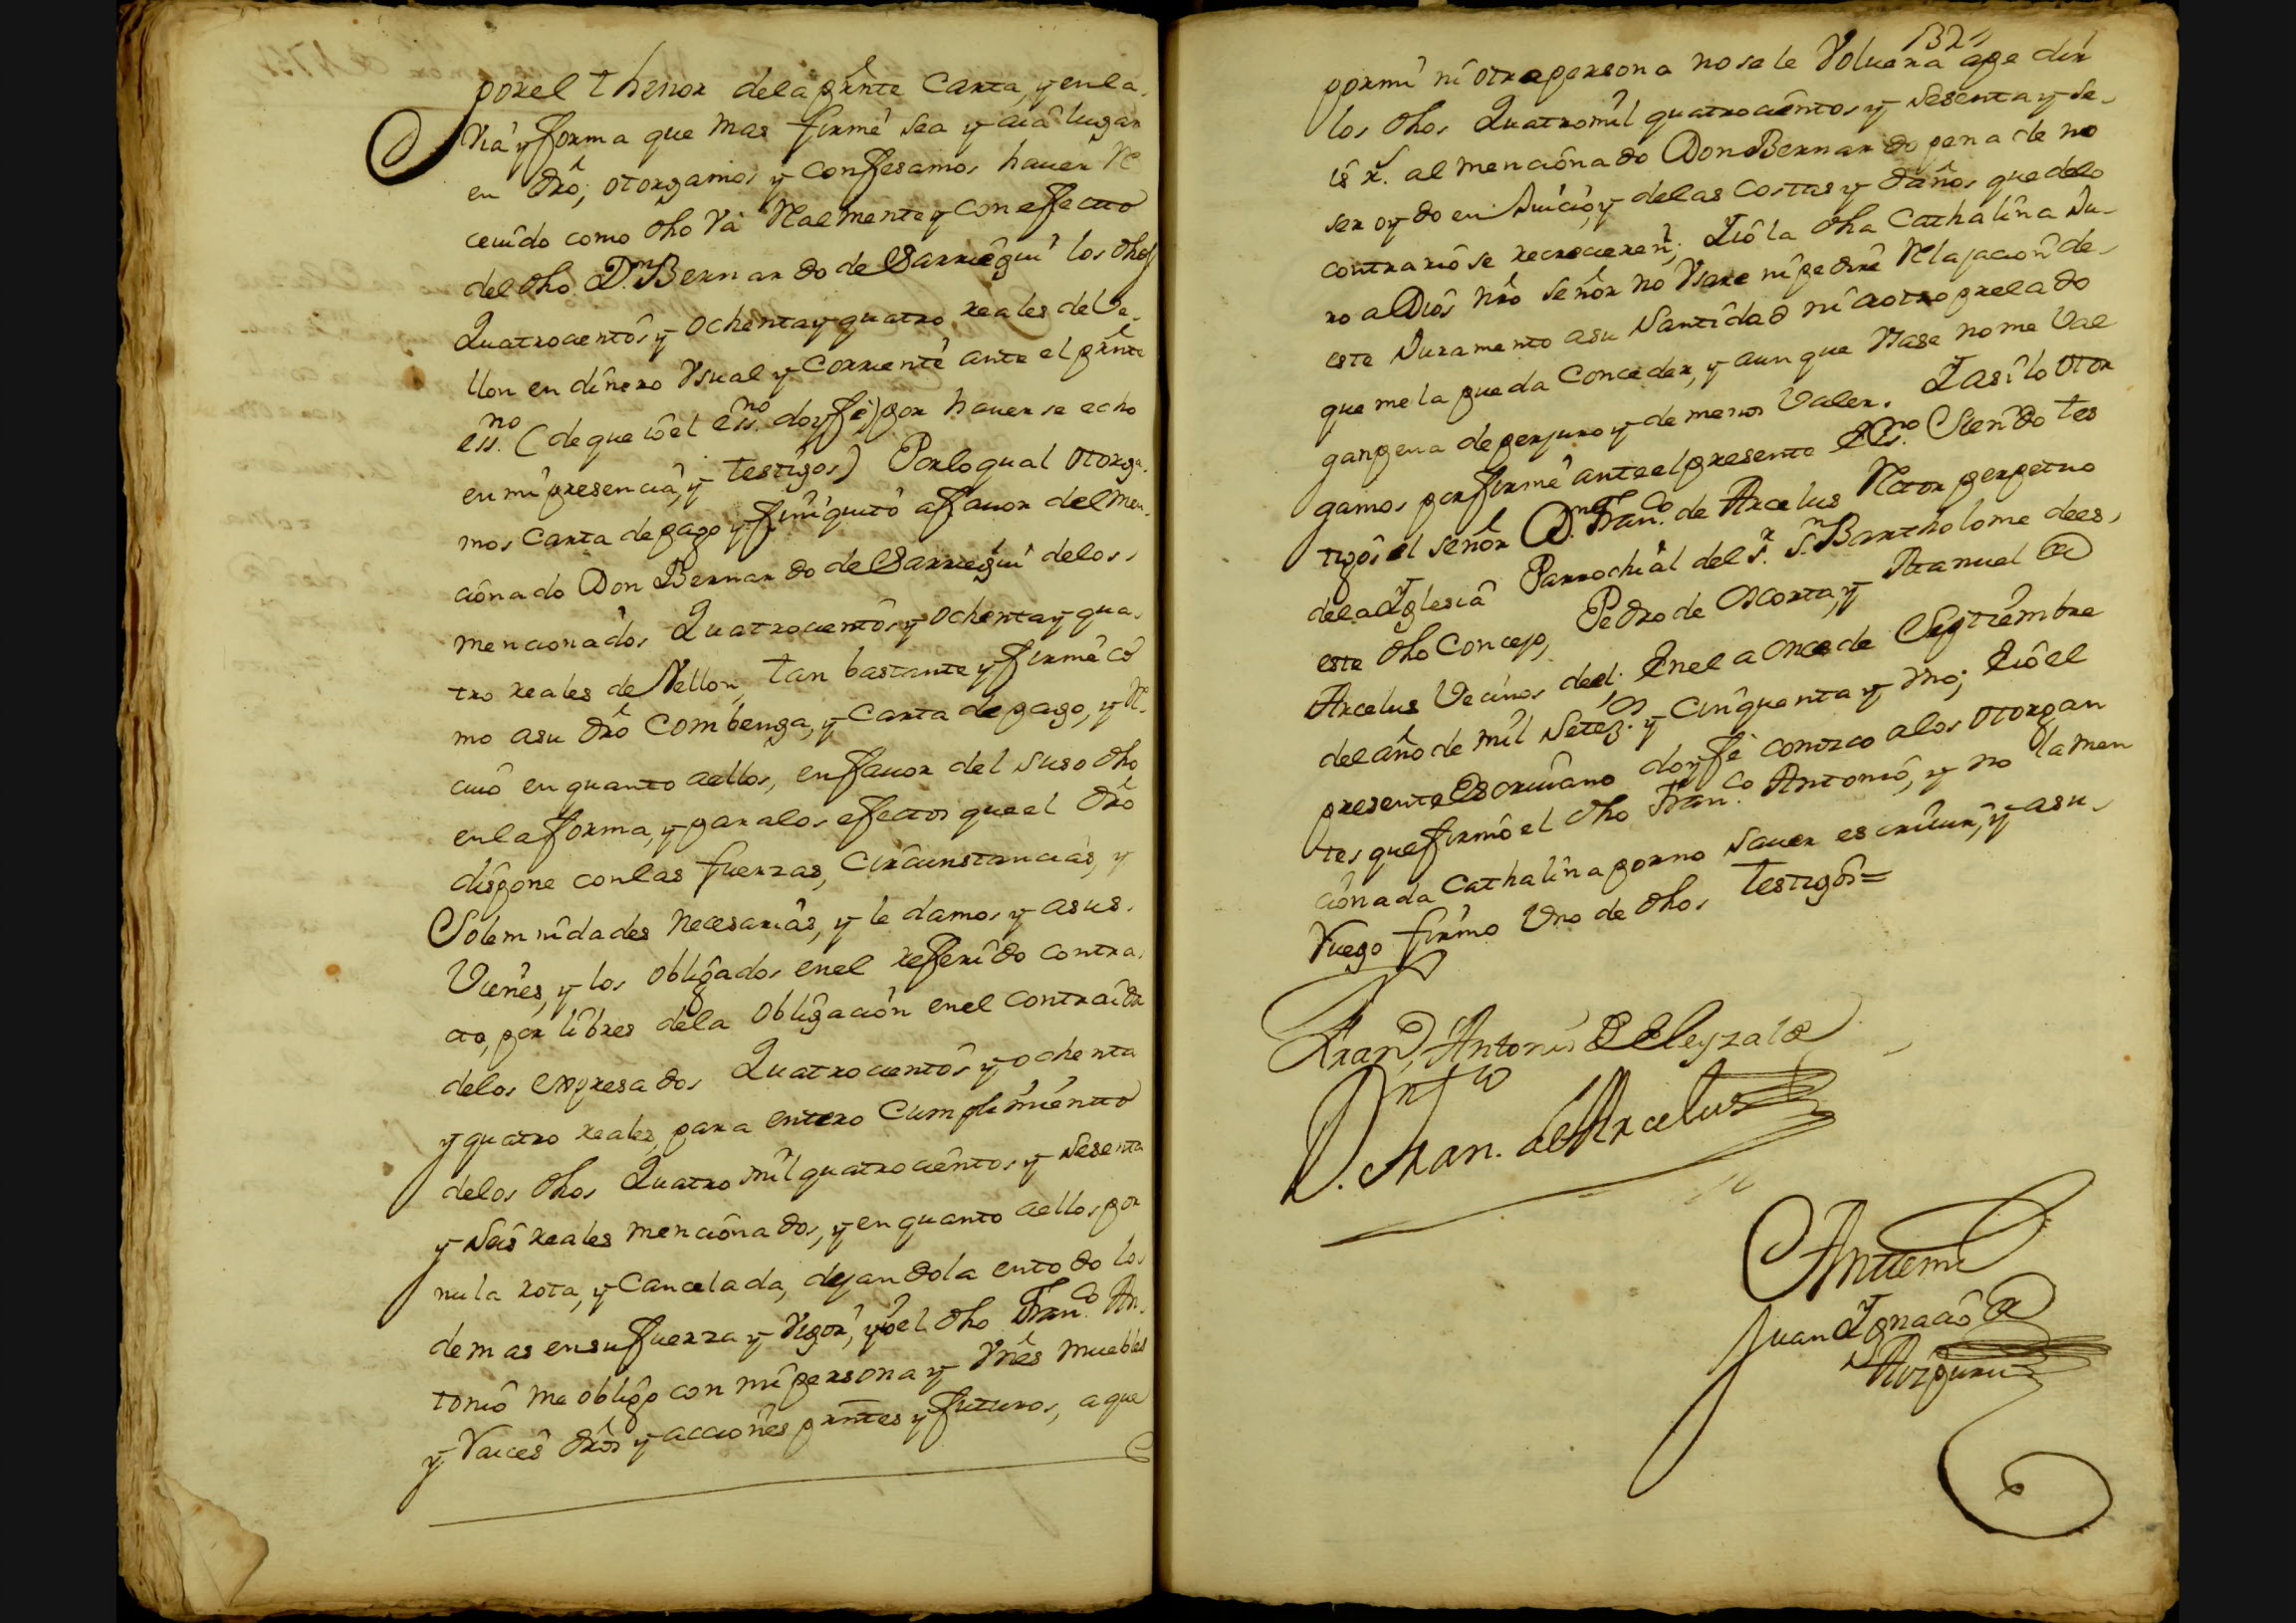 por el thenor dela prnte Carta, y en la
Via y forma que mas firme sea y aia lugar
en dro; otorgamos y confesamos haver Re
ceuido como dho Va Realmente y con effecto
del dho Dn. Bernardo de Sarriegui los dhos
Quatrocientos y ochenta y quatro reales de Ve
llon en dinero Vsual y Corriente ante el prnte
essno. (de que io el essno. doy fe) por haverse echo
en mi presencia, y testigos) Por lo qual otorga
mos Carta de pago y finiquito a favor del men
cionado Don Bernardo de Sarriegui delos
mencionados Quatrocientos y ochenta y qua
tro reales de Vellon, tan bastante y firme co
mo a su dro Combenga, y Carta de pago, y Re
civo en quanto a ellos, en favor del suso dho
en la forma, y para los efectos que el dro
dispone con las fuerzas, Circunstancias, y
Solemnidades Necesarias, y le damos y a sus
Vienes, y los obligados en el refferido contra
cto, por libres dela obligacion en el contraida
delos expresados Quatrocientos y ochenta
y quatro reales, para entero Cumplimiento
delos dhos Quatro mil quatrocientos y Sesenta
y Seis reales mencionados, y en quanto a ellos por
nula rota, y Cancelada, dejandola en todo lo
demas en su fuerza y Vigor, y io el dho Franco. An
tonio me obligo con mi persona y Vnes muebles
y Raices dros y acciones prntes y futuros, a que
132
por mi ni otra persona no se le Voluera a pedir
los dhos Quatro mil quatrocientos y Sesenta y Se
is rs. al mencionado Don Bernardo pena de no
ser oydo en Juicio, y delas Costas y daños que delo
contrario se recrecieren; Y io la dha Cathalina Ju
ro a Dios nro señor no Vsare ni pedire Relajacion de
este Juramento a su Santidad ni a otro prelado
que me la pueda Conceder, y aunque Vsase no me Val
ga pena de perjuro y de menos Valer. Y asi lo otor
gamos por firme ante el presente Essno. Siendo tes
tigos el señor Dn. Franco. de Arcelus Rector perpetuo
dela Yglesia Parrochial del Sr. Sn. Bartholome de es
este dho Concejo, Pedro de Ascorta, y Manuel de
Arcelus Vecinos de el. En el a once de Septiembre
del año de mil Setezos. y Cinquenta y Vno; Y io el
presente Escriuano doy fe conozco a los otorgan
tes que firmo el dho Franco. Antonio, y no la men
cionada Cathalina por no Sauer escriuir, y a su
Ruego firmo Vno de dhos testigos=
Franco. Antonio de Eleyzalde
Dn. Franco. de Arcelus
Antemi
Juan Ygnacio de
Aizpuru